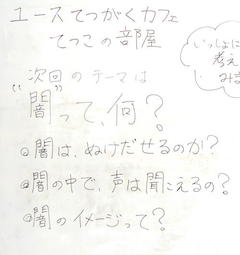 ユースてつがくカフェ
てつこの部屋
"次回"のテーマは
闇って、何?
◎闇は、ぬけだせるのか?
◎闇の中で、声は聞こえるの?
◎闇のイメージって?
いっしょに
考え
みま